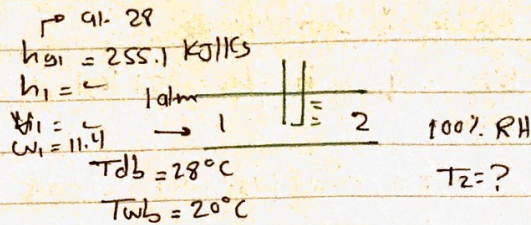 at 28
hg1 = 255.1 KJ/KG
h1 = ✓
1 atm
v1 = ✓
w1 = 11.4
→ 1
2
100% RH
Tdb = 28°C
T2 = ?
Twb = 20°C